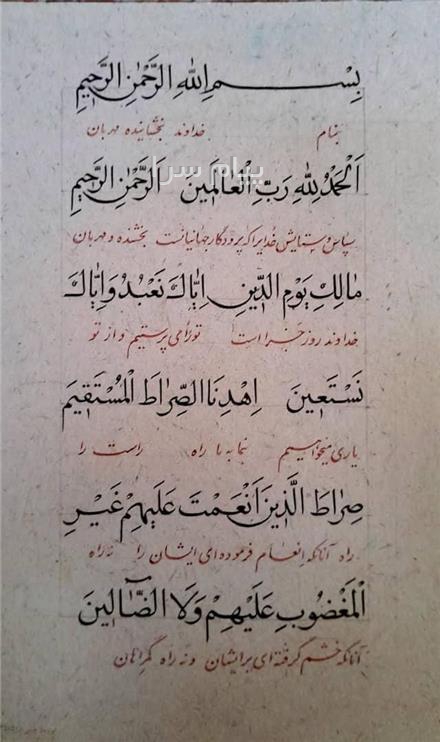 بِسْمِ اللهِ الرَّحْمٰنِ الرَّحِیمِ
بنام خداوند بخشاینده مهربان
اَلْحَمْدُ لِلّٰهِ رَبِّ الْعَالَمِینَ اَلرَّحْمٰنِ الرَّحِیمِ
سپاس و ستایش خدایرا که پروردگار جهانیانست بخشنده و مهربان
مَالِكِ یَوْمِ الدِّینِ اِیَّاكَ نَعْبُدُ وَ اِیَّاكَ
خداوند روز جزا است تو را می پرستیم و از تو
نَسْتَعِینَ اِهْدِنَا الصِّرَاطَ الْمُسْتَقِیمَ
یاری میخواهیم بنما به ما راه راست را
صِرَاطَ الَّذِینَ اَنْعَمْتَ عَلَیْهِمْ غَیْرِ
راه آنانکه انعام فرموده ای ایشان را نه راه
الْمَغْضُوبِ عَلَیْهِمْ وَلَا الضَّآلِّینَ
آنانکه خشم گرفته ای برایشان و نه راه گمراهان
پیام سرا